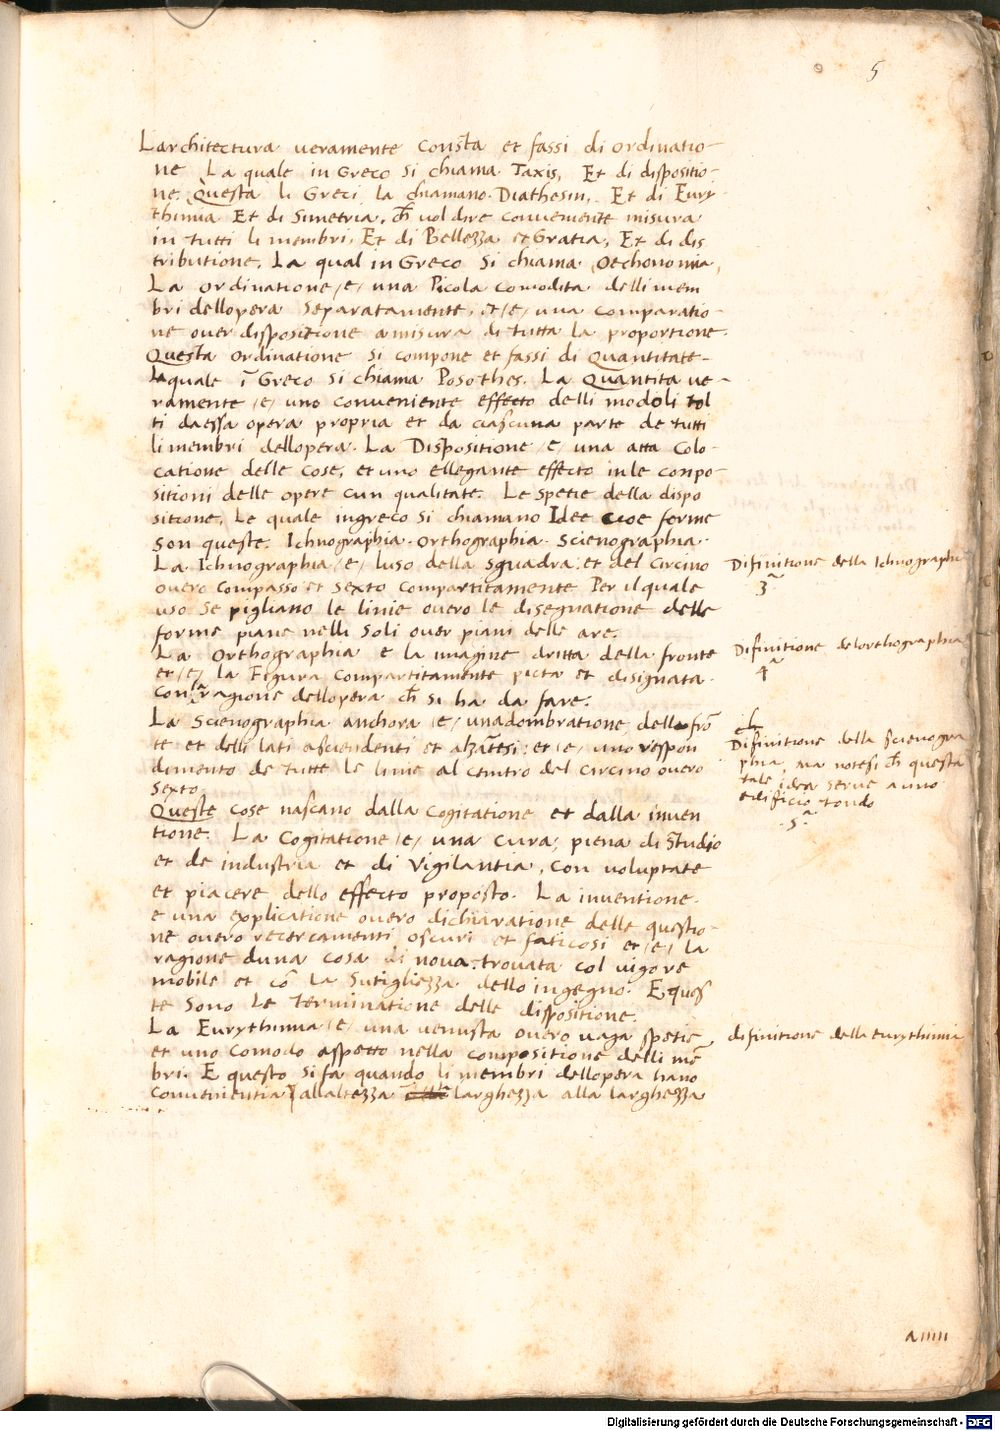 5
Larchitectura veramente consta et fassi di ordinatio-
ne La quale in Greco si chiama Taxis, Et di dispositio-
ne. Questa li Greci la chiamano Diathesin, Et di Eury-
thmia Et di Simetria, ch̅ vol dire conveniente misura
in tutti li membri, Et di Bellezza et Gratia, Et di dis
tributione. La qual in Greco si chiama Oechonomia,
La ordinatione /e/ una Picola comodita delli mem
bri dellopera separatamente, et /e/ una comparatio-
ne over dispositione a misura di tutta la proportione.
Questa ordinatione si compone et fassi di Quantitate-
laquale ī Greco si chiama Posothes. La Quantita ve-
ramente /e/ uno conveniente effecto delli modoli tol
ti daessa opera propria et da ciascuna parte de tutti
li membri dellopera. La Dispositione /e/ una atta colo-
catione delle cose, et uno ellegante effecto in le conpo-
sitioni delle opere cun qualitate. Le spetie della dispo
sitione, Le quale ingreco si chiamano Idee cioe forme
son queste. Ichnographia. orthographia. Scienographia.
La Ichnographia /e/ luso della squadra et del circino
overo compasso et sexto compartitamente Per il quale
uso se pigliano le linie overo le disegnatione delle
forme piane nelli soli over piani delle are.
La orthographia e la imagine dritta della fronte
et /e/ la Figura compartitamente picta et disignata.
con la ragione dellopera ch̅ si ha da fare.
La Scienographia anchora /e/ unadombratione della frō
te et delli lati ascendenti et alzātesi: et /e/ uno respon
dimento de tutte le linie al centro del circino overo
sexto.
Queste cose nascano dalla cogitatione et dalla inven
tione. La cogitatione /e/ una cura, piena di studio
et de industria et di vigilantia, con voluptate
et piacere dello effecto proposto. La inventione.
e una explicatione overo dichiaratione delle questio-
ne overo recercamenti oscuri et faticosi et /e/ la
ragione duna cosa di nova trovata col vigore
mobile et cō la sutigliezza dello ingegno. E ques
te sono le terminatione delle dispositione.
La Eurythmia /e/ una venusta overo vaga spetie
et uno comodo aspetto nella compositione delli mē
bri. E questo si fa quando li membri dellopera hano
convenientia allaltezza larghezza alla larghezza
Difinitione della Ichnographia
3ᵃ
Difinitione delorthographia
4ᵃ
Difinitione della scienogra
phia, ma notesi ch̅ questa
tale idea serve a uno
edificio tondo
5ᵃ
difinitione della eurythimia
a iiiii
Digitalisierung gefördert durch die Deutsche Forschungsgemeinschaft - DFG